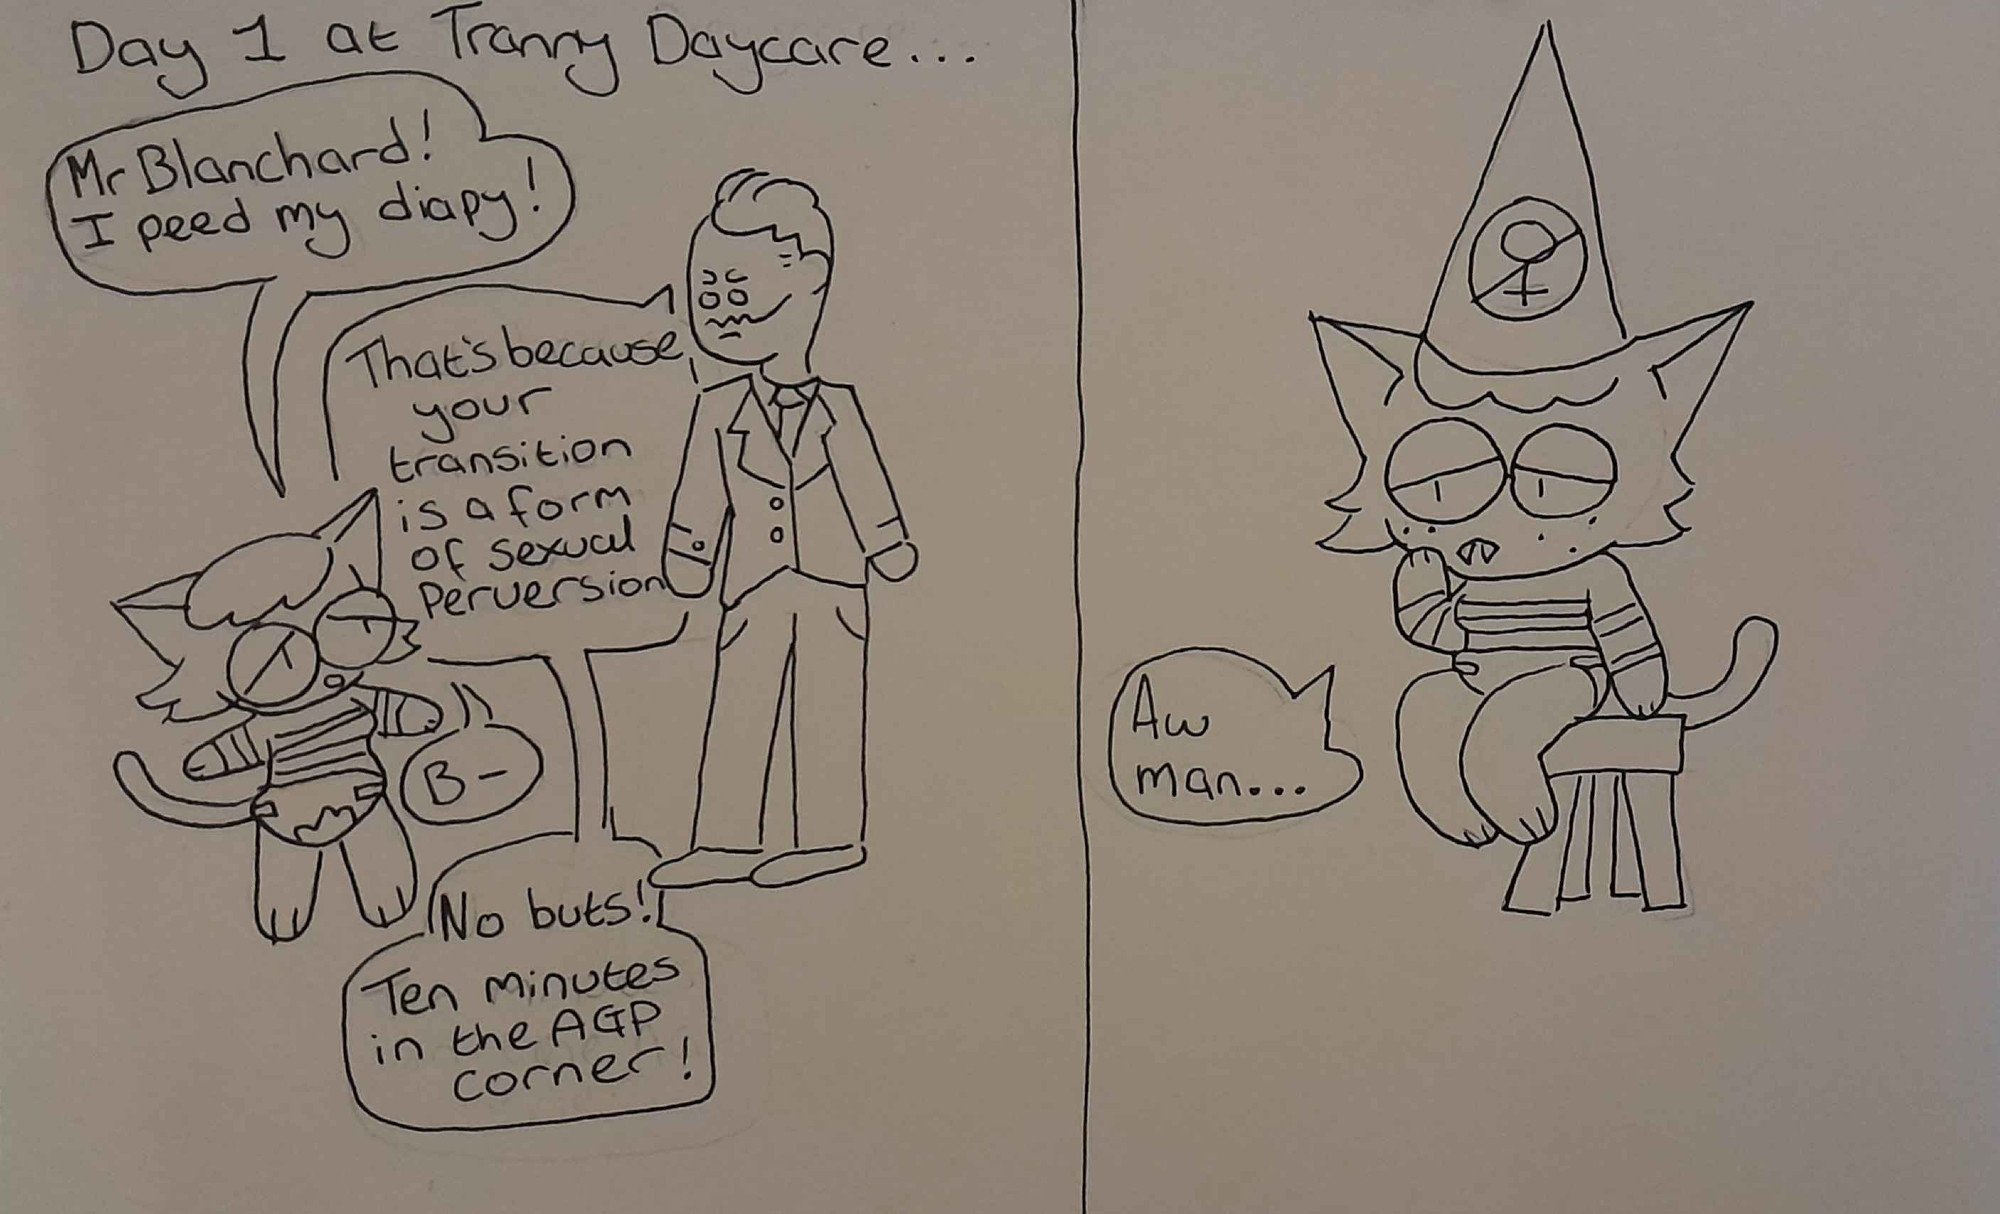 Day 1 at Tranny Daycare...
Mr Blanchard!
I peed my diapy!
That's because
your
transition
is a form
of sexual
perversion
B-
No buts!
Ten minutes
in the AGP
corner!
Aw
man...